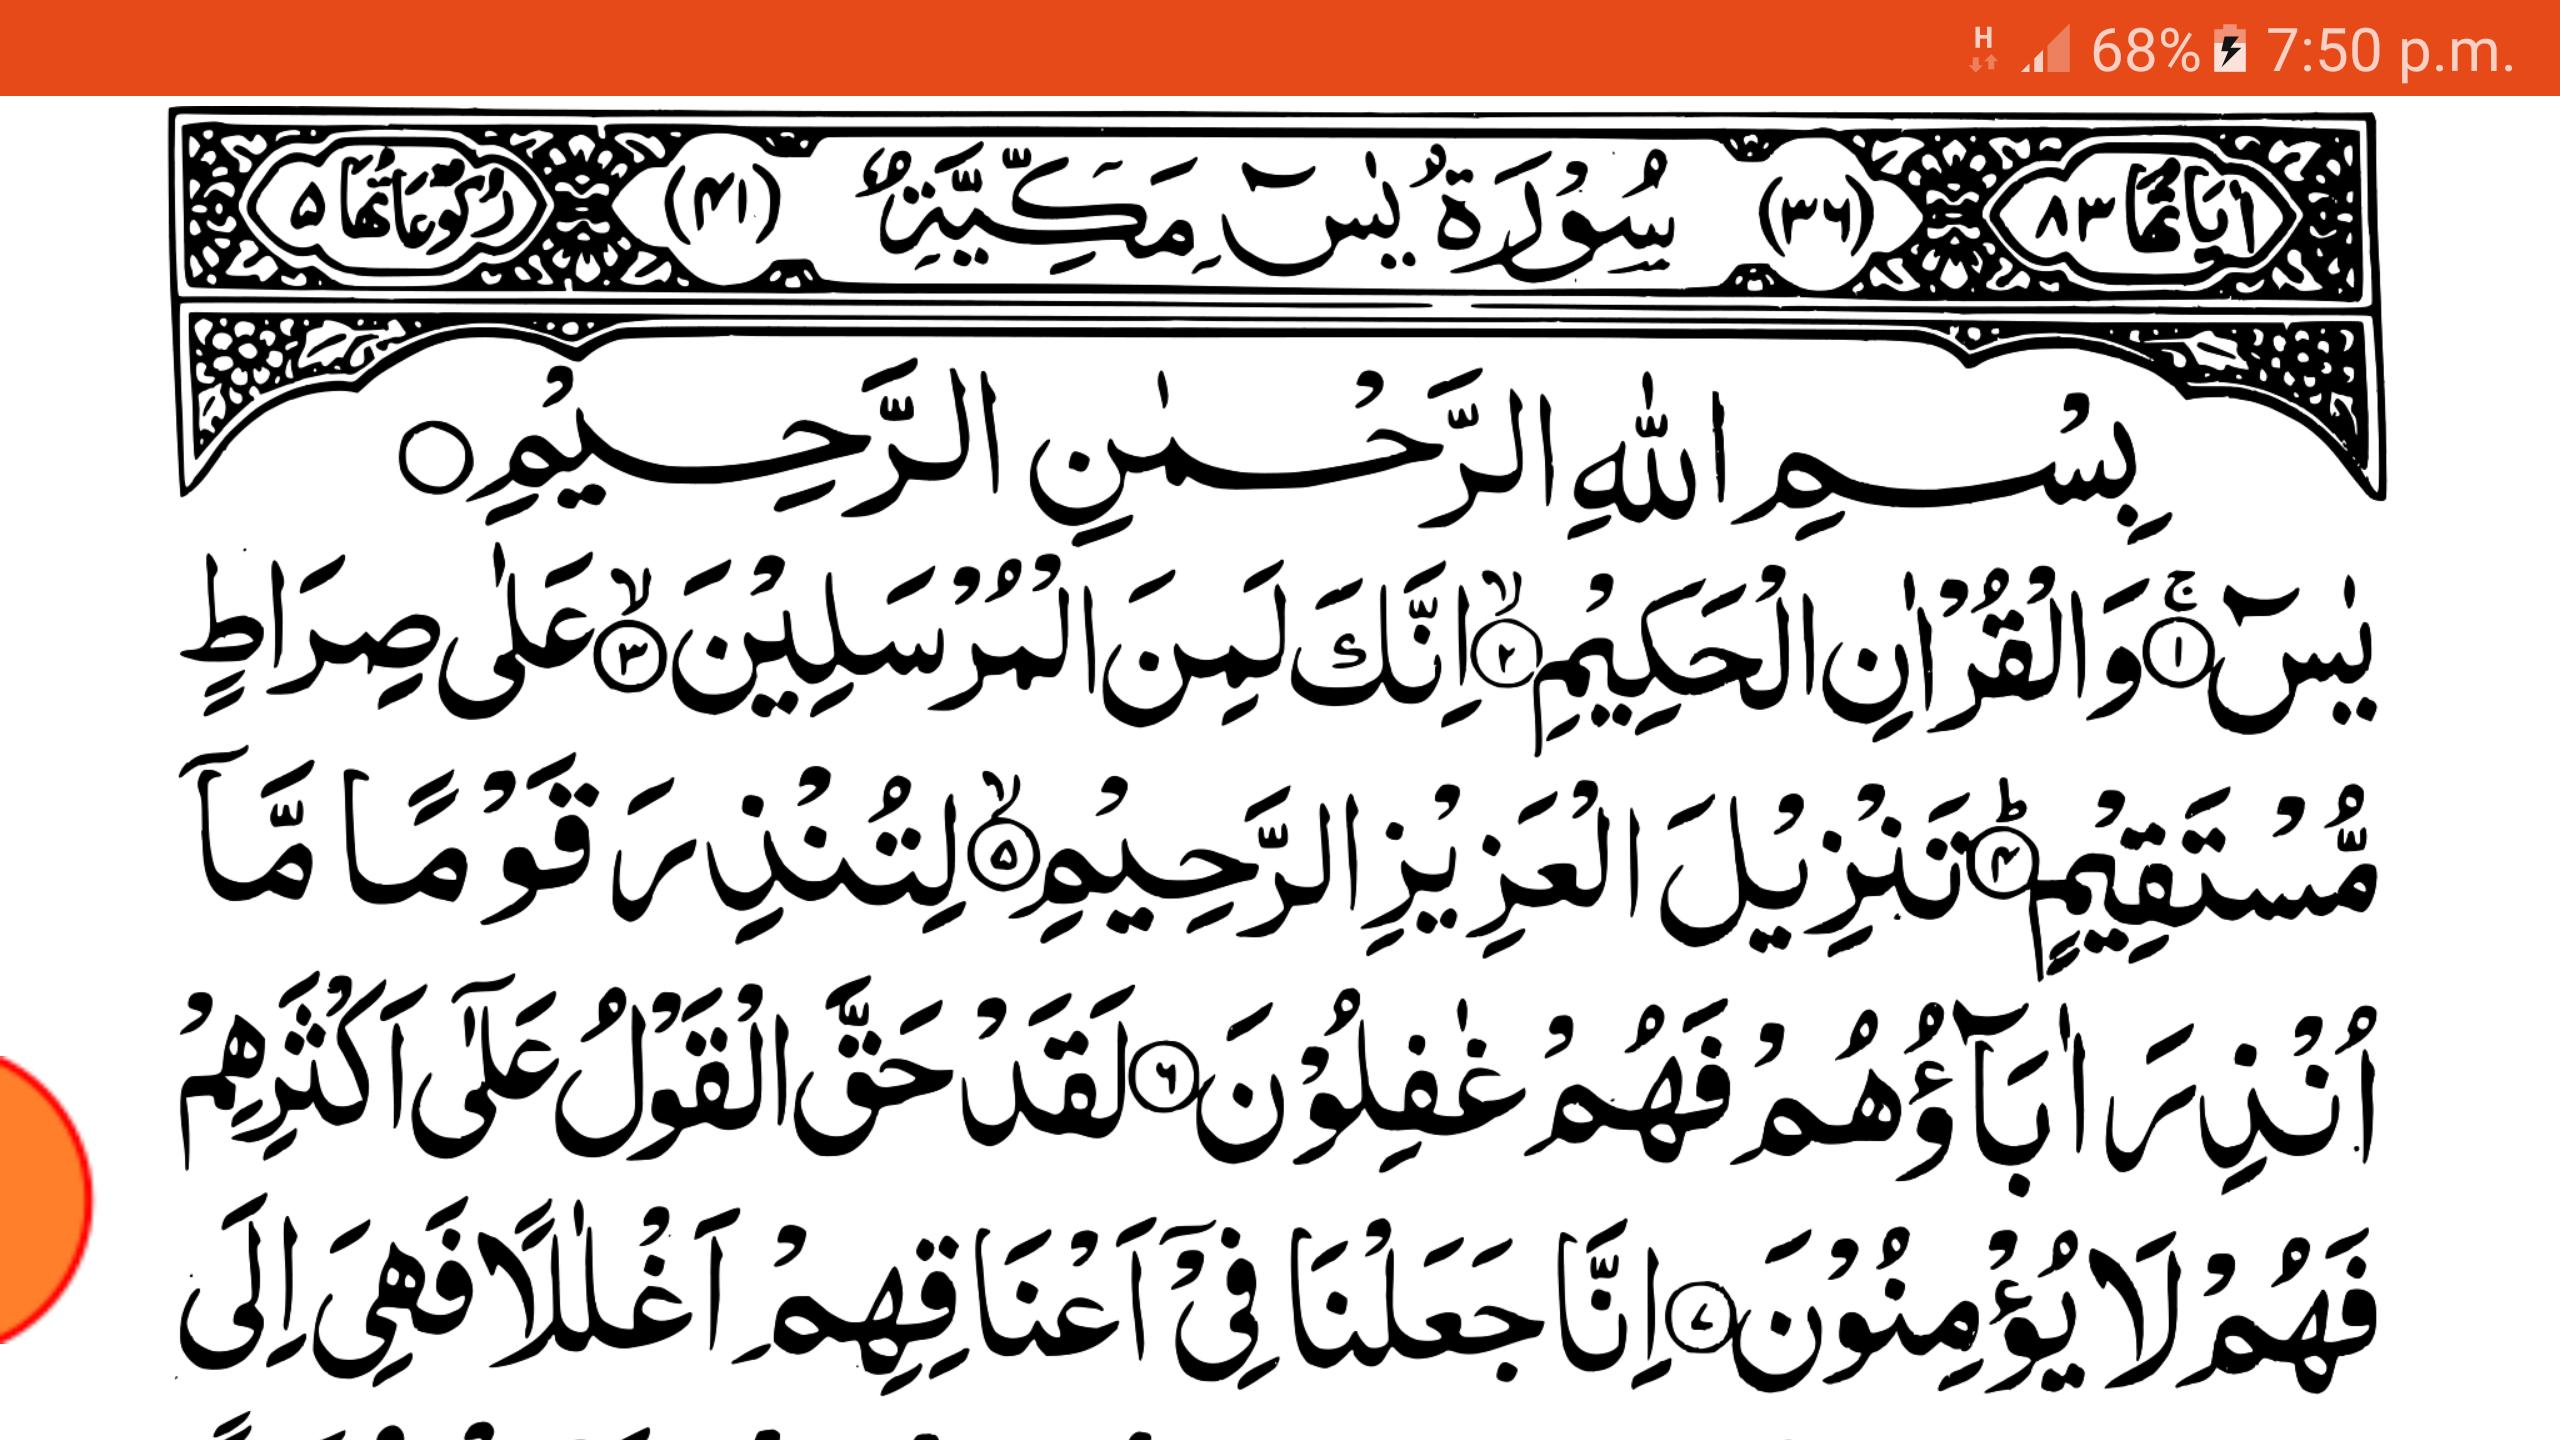 H 68% 7:50 p.m.
اٰيَاتُهَا ٨٣ (٣٦) سُوْرَةُ يٰسٓ مَكِّيَّةٌ (٤١) رُكُوْعَاتُهَا ۵
بِسْمِ اللّٰهِ الرَّحْمٰنِ الرَّحِيْمِ ○
يٰسٓ ۚ﴿۱﴾ وَالْقُرْاٰنِ الْحَكِيْمِ ۙ﴿۲﴾ اِنَّكَ لَمِنَ الْمُرْسَلِيْنَ ۙ﴿۳﴾ عَلٰى صِرَاطٍ
مُّسْتَقِيْمٍ ؕ﴿۴﴾ تَنْزِيْلَ الْعَزِيْزِ الرَّحِيْمِ ۙ﴿۵﴾ لِتُنْذِرَ قَوْمًا مَّاۤ
اُنْذِرَ اٰبَآؤُهُمْ فَهُمْ غٰفِلُوْنَ ﴿۶﴾ لَقَدْ حَقَّ الْقَوْلُ عَلٰٓى اَكْثَرِهِمْ
فَهُمْ لَا يُؤْمِنُوْنَ ﴿۷﴾ اِنَّا جَعَلْنَا فِىْٓ اَعْنَاقِهِمْ اَغْلٰلًا فَهِىَ اِلَى